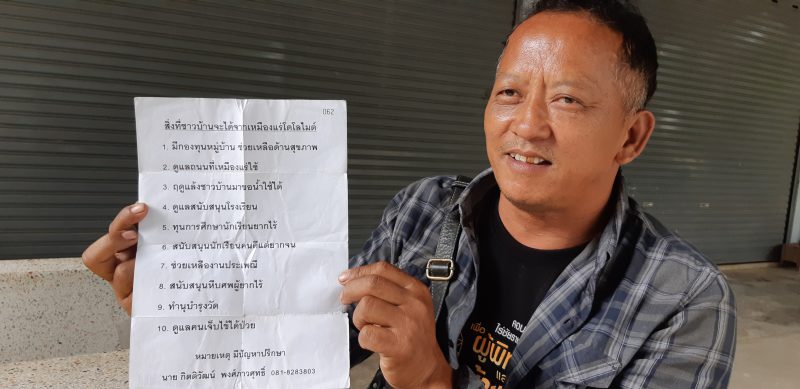 062
สิ่งที่ชาวบ้านจะได้จากเหมืองแร่โดโลไมต์
1. มีกองทุนหมู่บ้าน ช่วยเหลือด้านสุขภาพ
2. ดูแลถนนที่เหมืองแร่ใช้
3. ฤดูแล้งชาวบ้านมาขอน้ำใช้ได้
4. ดูแลสนับสนุนโรงเรียน
5. ทุนการศึกษานักเรียนยากไร้
6. สนับสนุนนักเรียนคนดีแต่ยากจน
7. ช่วยเหลืองานประเพณี
8. สนับสนุนหีบศพผู้ยากไร้
9. ทำนุบำรุงวัด
10. ดูแลคนเจ็บไข้ได้ป่วย
หมายเหตุ มีปัญหาปรึกษา
นาย กิตติวัฒน์ พงศ์ภาวสุทธิ์ 081-8283803
เพื่อ